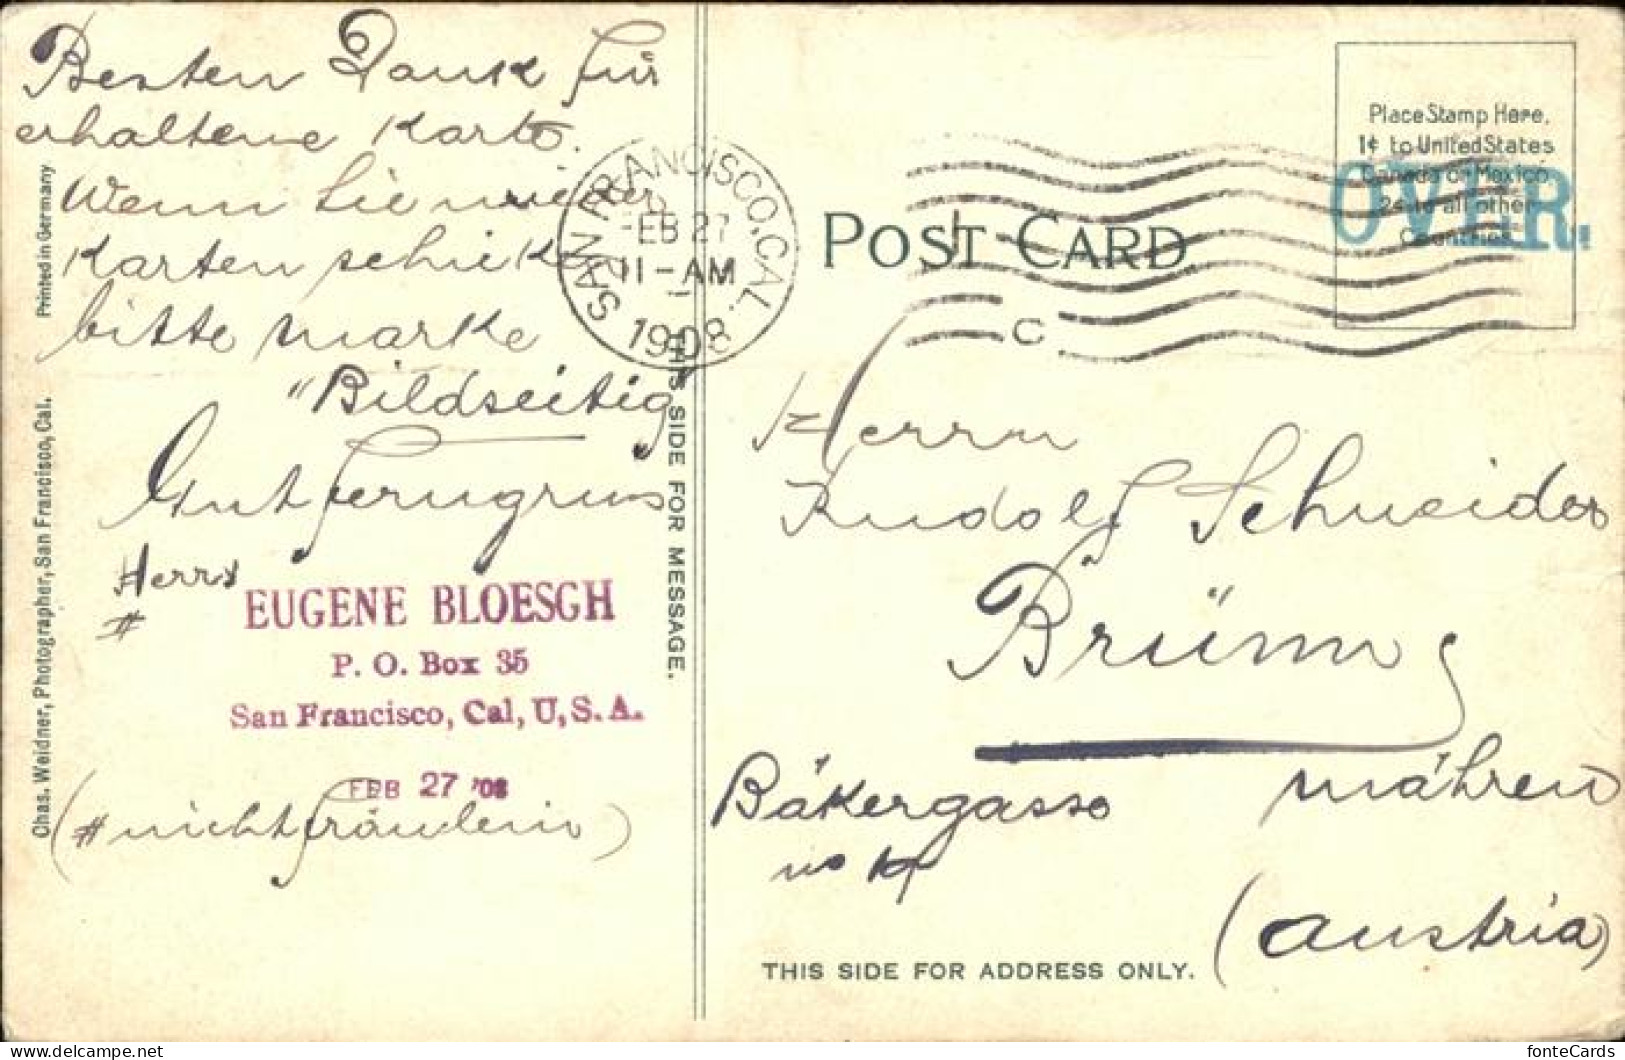 Besten Dank für
erhaltene Karte.
Wenn Sie wieder
Karten schick
bitte marke
"Bildseitig
Gut ferngruss
Herrn
#
EUGENE BLOESGH
P. O. Box 35
San Francisco, Cal, U.S.A.
FEB 27 '08
(# nicht fräulein)
Printed in Germany
Chas. Weidner, Photographer, San Francisco, Cal.
THIS SIDE FOR MESSAGE.
SAN FRANCISCO, CAL.
FEB 27
11-AM
1908
C
POST CARD
Place Stamp Here.
1¢ to United States
Canada or Mexico
2¢ to all other
Countries.
OVER.
Herrn
Rudolf Schneider
Brünn
Mähren
Bäkergasse
no
(Austria)
THIS SIDE FOR ADDRESS ONLY.
fonteCards